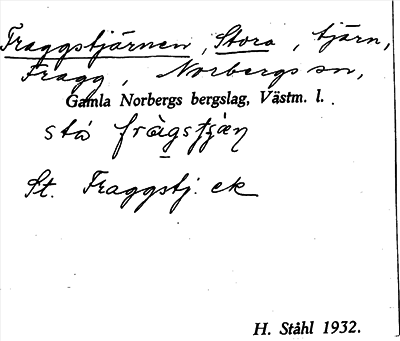 Fraggstjärnen, Stora, tjärn,
Fragg, Norbergs sn,
Gamla Norbergs bergslag, Västm. l.
St. Fraggstj. ek
H. Ståhl 1932.